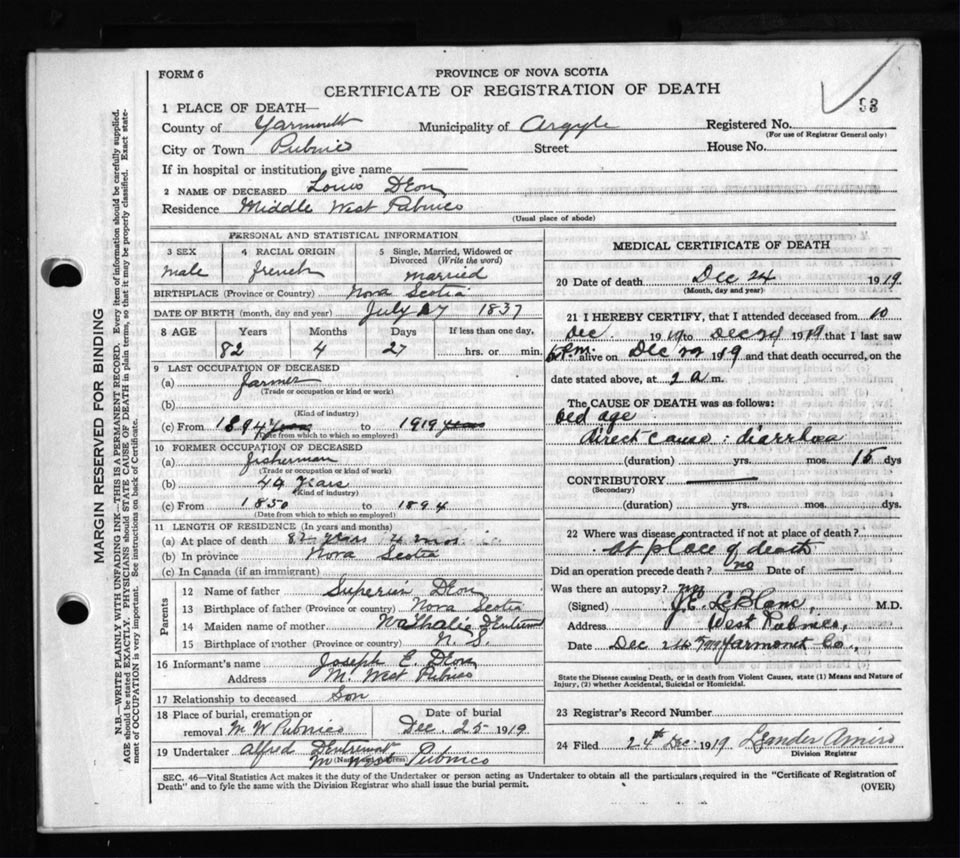 FORM 6
PROVINCE OF NOVA SCOTIA
CERTIFICATE OF REGISTRATION OF DEATH
93
1 PLACE OF DEATH—
County of Yarmouth Municipality of Argyle Registered No.
(For use of Registrar General only)
City or Town Pubnico Street House No.
If in hospital or institution, give name —
2 NAME OF DECEASED Louis DEon
Residence Middle West Pubnico
(Usual place of abode)
PERSONAL AND STATISTICAL INFORMATION
3 SEX 4 RACIAL ORIGIN 5 Single, Married, Widowed or Divorced (Write the word)
male french married
BIRTHPLACE (Province or Country) Nova Scotia
DATE OF BIRTH (month, day and year) July 27 1837
8 AGE Years Months Days If less than one day,
82 4 27 hrs. or min.
9 LAST OCCUPATION OF DECEASED
(a) farmer
(Trade or occupation or kind of work)
(b)
(Kind of industry)
(c) From 1894 years to 1919 years
(Date from which to which so employed)
10 FORMER OCCUPATION OF DECEASED
(a) fisherman
(Trade or occupation or kind of work)
(b) 44 years
(Kind of industry)
(c) From 1850 to 1894
(Date from which to which so employed)
11 LENGTH OF RESIDENCE (In years and months)
(a) At place of death 82 years 4 mos.
(b) In province Nova Scotia
(c) In Canada (if an immigrant)
Parents
12 Name of father Superin DEon
13 Birthplace of father (Province or country) Nova Scotia
14 Maiden name of mother Nathalie
15 Birthplace of mother (Province or country) N. S.
16 Informant's name Joseph E. DEon
Address M. West Pubnico
17 Relationship to deceased Son
18 Place of burial, cremation or removal M W Pubnico Date of burial Dec. 25 1919
19 Undertaker Alfred DEntremont
(Name and address) M West Pubnico
MEDICAL CERTIFICATE OF DEATH
20 Date of death Dec 24 1919
(Month, day and year)
21 I HEREBY CERTIFY, that I attended deceased from 10
Dec. 1919 to Dec 24 1919 that I last saw
P.M. alive on Dec 22 1919 and that death occurred, on the
date stated above, at 2 a m.
The CAUSE OF DEATH was as follows:
old age
direct cause: diarrhoea
(duration) yrs. mos. 15 dys
CONTRIBUTORY —
(Secondary)
(duration) yrs. mos. dys.
22 Where was disease contracted if not at place of death?
at place of death
Did an operation precede death? no Date of —
Was there an autopsy? no
(Signed) J.E. LeBlanc, M.D.
Address West Pubnico,
Date Dec 24 Yarmouth Co.,
State the Disease causing Death, or in death from Violent Causes, state (1) Means and Nature of
Injury, (2) whether Accidental, Suicidal or Homicidal.
23 Registrar's Record Number
24 Filed 24th Dec. 1919 Leander Amiro
Division Registrar
SEC. 46—Vital Statistics Act makes it the duty of the Undertaker or person acting as Undertaker to obtain all the particulars required in the "Certificate of Registration of
Death" and to fyle the same with the Division Registrar who shall issue the burial permit.
(OVER)
MARGIN RESERVED FOR BINDING
N.B.—WRITE PLAINLY WITH UNFADING INK—THIS IS A PERMANENT RECORD. Every item of information should be carefully supplied.
AGE should be stated EXACTLY. PHYSICIANS should STATE CAUSE OF DEATH in plain terms, so that it may be properly classified. Exact state-
ment of OCCUPATION is very important. See instructions on back of Certificate.